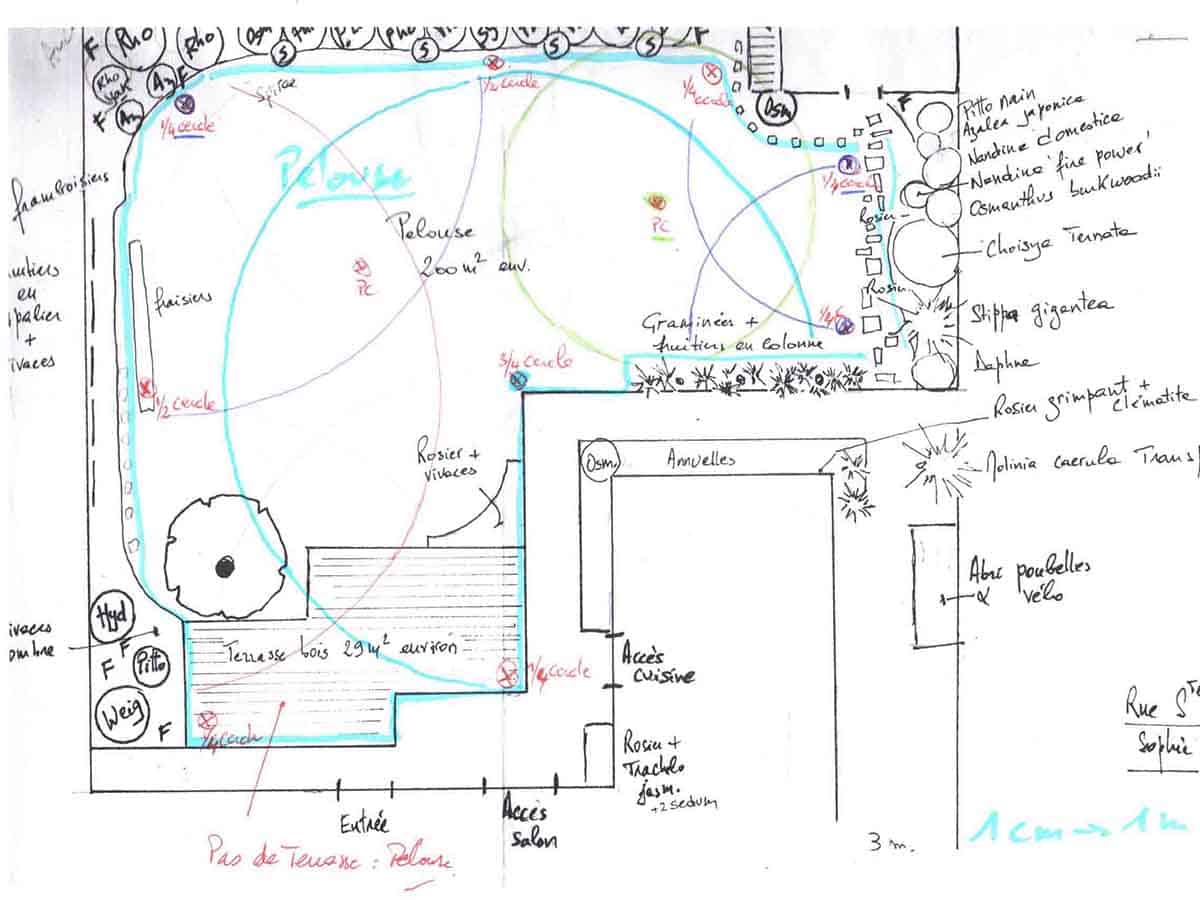 F
Rho
Rho
Osm
S
S
S
S
F
Rho
Yak
Az
F
F
Az
Spirae
1/4 cercle
1/2 cercle
1/4 cercle
Osm
F
Pitto nain
Azalea japonica
Nandina domestica
Nandina 'fire power'
Osmanthus burkwoodii
Choisya Ternata
Stippa gigantea
Daphne
Pelouse
Pelouse
200 m² env.
framboisiers
PC
PC
1/4 cercle
Rosier
Rosier
fraisiers
en
+
1/2 cercle
3/4 cercle
Graminées +
fruitiers en colonne
1/4 c
Rosier +
vivaces
Rosier grimpant +
Clématite
Osm.
Annuelles
Molinia caerula Transp
Abri poubelles
& vélo
Hyd
F
F
Pitto
Weig
F
Terrasse bois 29 m² environ
1/4 cercle
1/4 cercle
Accès
cuisine
Rosier +
Trachelo
jasm.
+2 sedum
Entrée
Accès
Salon
Pas de Terrasse : Pelouse
3 m.
Rue Ste
Sophie
1 cm → 1 m